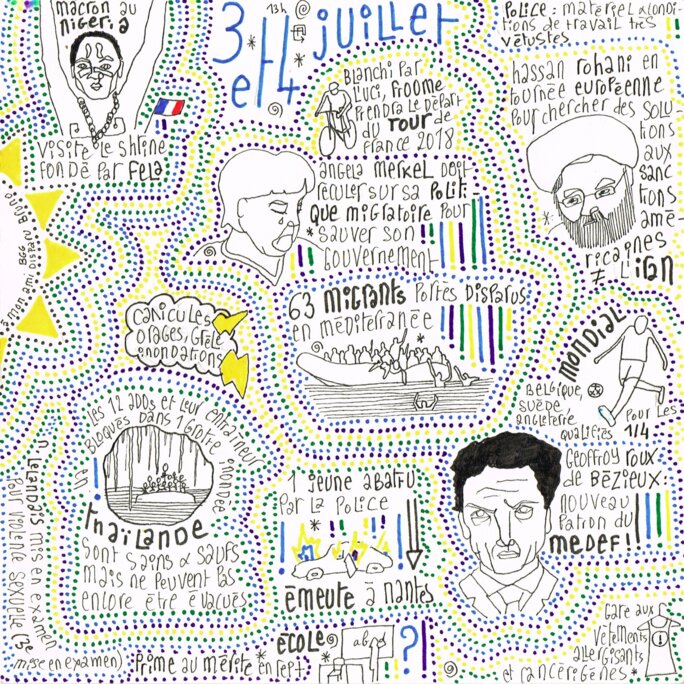 macron au
nigeria
visite le shrine
fondé par Fela
13h
3
et 4
juillet
Police : matériel & condi-
tions de travail très
vétustes
Blanchi par
l'uci, Froome
prendra le départ
du Tour de
France 2018
hassan rohani en
tournée européenne
pour chercher des solu
tions
aux
sanc
tions
amé-
ricaines
≠ l'iran
angela merkel doit
reculer sur sa polit-
que migratoire pour
sauver son
gouvernement
à mon ami disparu
BGG
canicules
orages, grêle
inondations
63 migrants portés disparus
en méditerranée
mondial
Belgique,
suède,
angleterre,
qualifiés
pour les
1/4
les 12 ados et leur entraîneur
bloqués dans 1 grotte inondée
Thaïlande
sont sains & saufs
mais ne peuvent pas
encore être évacués
1 jeune abattu
par la police
émeute à nantes
Geoffroy roux
de Bézieux :
nouveau
patron du
medef !!
un
lelandais mis en examen
pour violence sexuelle (3e
mise en examen)
école
prime au mérite en sept.
abcd
?
Gare aux
vêtements
allergisants
et cancérigènes